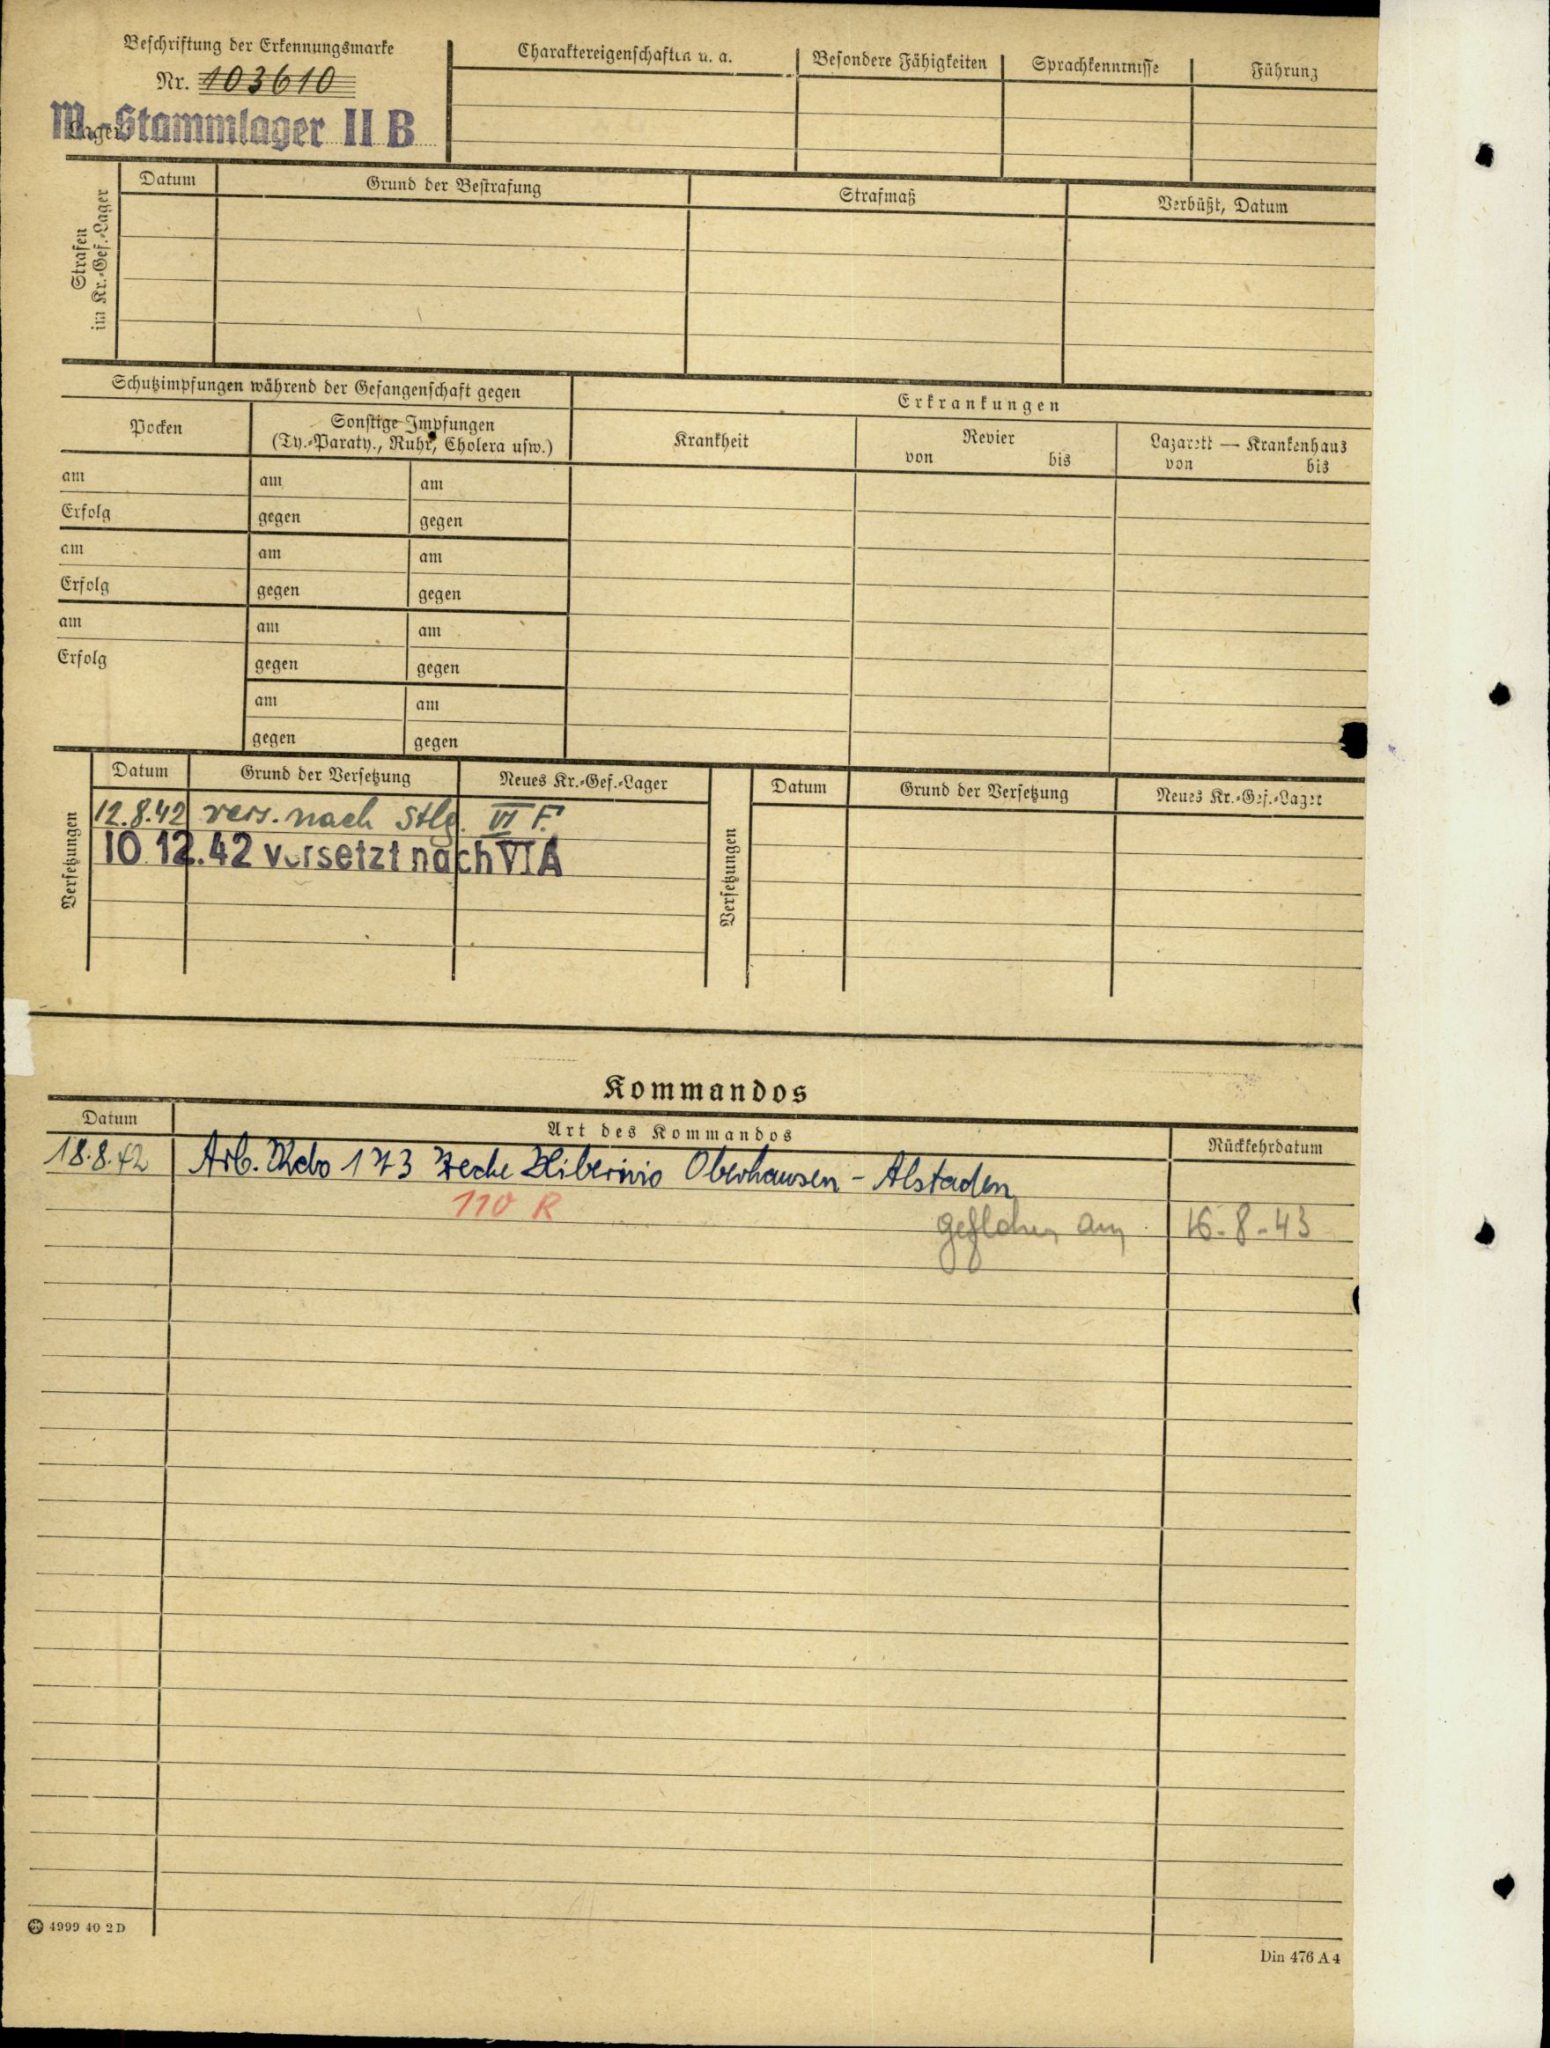 Beschriftung der Erkennungsmarke
Nr. 103610
Lager
M.-Stammlager II B
Charaktereigenschaften u. a.
Besondere Fähigkeiten
Sprachkenntnisse
Führung
Strafen
im Kr.-Gef.-Lager
Datum
Grund der Bestrafung
Strafmaß
Verbüßt, Datum
Schutzimpfungen während der Gefangenschaft gegen
Erkrankungen
Pocken
Sonstige Impfungen
(Ty.-Paraty., Ruhr, Cholera usw.)
Krankheit
Revier
von bis
Lazarett — Krankenhaus
von bis
am am am
Erfolg gegen gegen
am am am
Erfolg gegen gegen
am am am
Erfolg gegen gegen
am am
gegen gegen
Versetzungen
Datum Grund der Versetzung Neues Kr.-Gef.-Lager
12.8.42 vers. nach Stlg. VI F.
10 12.42 versetzt nach VI A
Versetzungen
Datum Grund der Versetzung Neues Kr.-Gef.-Lager
Kommandos
Datum Art des Kommandos Rückkehrdatum
18.8.42 Arb. Kdo 173 Zeche Hibernia Oberhausen - Alstaden
110 R
geflohen am 16-8-43
4999 40 2 D
Din 476 A 4